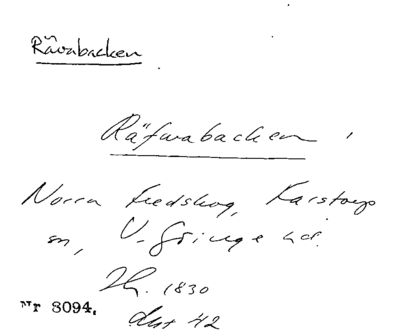 Rävabacken
Räfvabacken,
Norra Fredskog, Karstorps
sn, V. Göinge hd.
1830
Nr 8094.
42